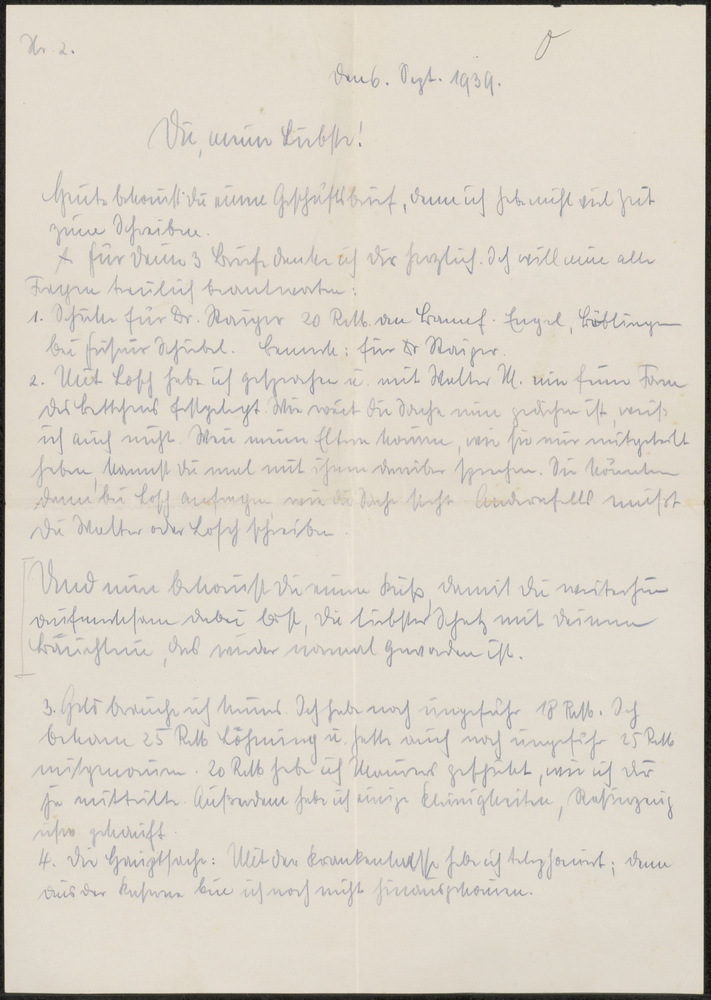 Nr. 2.
Den 6. Sept. 1939.
Du, meine Liebste!
Heute bekommst du einen Geschäftsbrief, denn ich habe nicht viel Zeit
zum Schreiben.
Für Deine 3 Briefe danke ich dir herzlich. Ich will nun alle
Fragen treulich beantworten:
1. Schicke für Dr. Staiger 20 RM. an Engel, Böblingen
bei Schübel. Bemerk: für Dr Staiger.
2. Mit Losch habe ich gesprochen u. mit Walter M. eine feine Form
des Bettchens festgelegt. Wie weit die Sache nun gediehen ist, weiß
ich auch nicht. Wenn meine Eltern kommen, wie sie mir mitgeteilt
haben, kannst du mal mit ihnen darüber sprechen. Sie könnten
dann bei Losch anfragen, wie die Sache steht. Andernfalls mußt
du Walter oder Losch schreiben.
Und nun bekommst Du einen Kuß, damit du weiterhin
aufmerksam dabei bist, Du liebster Schatz mit deinem
Bäuchlein, das wieder normal geworden ist.
3. Geld brauche ich keines. Ich habe noch ungefähr 18 RM. Ich
bekam 25 RM Löhnung u. hatte auch noch ungefähr 25 RM
mitgenommen. 20 RM habe ich Maurer geschickt, wie ich dir
ja mitteilte. Außerdem habe ich einige Kleinigkeiten, Rasierzeug
usw gekauft.
4. Die Hauptsache: Mit der Krankenkasse habe ich telephoniert; denn
aus der Kaserne bin ich noch nicht hinausgekommen.